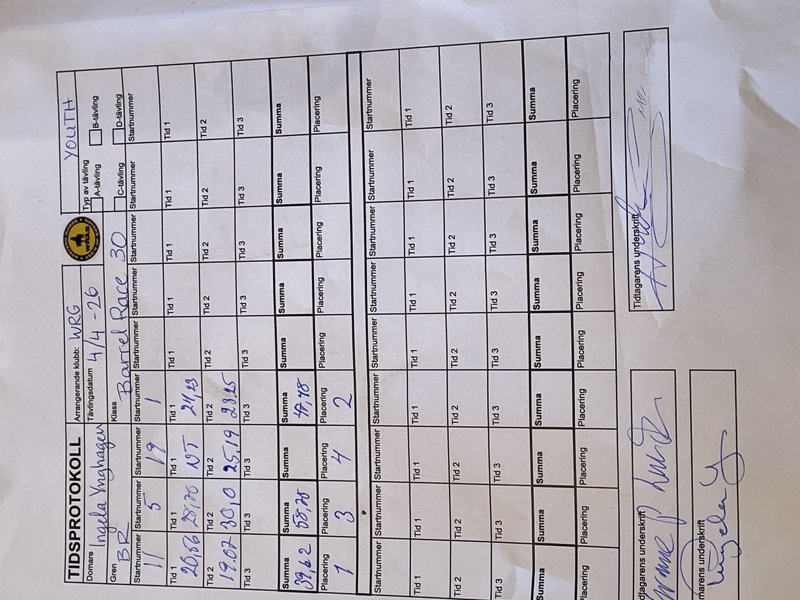 TIDSPROTOKOLL Arrangerande klubb: WRG YOUTH
Domare Ingela Ynghagen Tävlingsdatum 4/4-26 Typ av tävling
A-tävling B-tävling
Gren BR Klass Barrel Race 30 C-tävling D-tävling
Startnummer Startnummer Startnummer Startnummer Startnummer Startnummer Startnummer Startnummer Startnummer
11 5 19 1
Tid 1 Tid 1 Tid 1 Tid 1 Tid 1 Tid 1 Tid 1 Tid 1 Tid 1
20,56 NT 24,23
Tid 2 Tid 2 Tid 2 Tid 2 Tid 2 Tid 2 Tid 2 Tid 2 Tid 2
19.07 30,0 25,19 23,25
Tid 3 Tid 3 Tid 3 Tid 3 Tid 3 Tid 3 Tid 3 Tid 3 Tid 3
Summa Summa Summa Summa Summa Summa Summa Summa Summa
39,62 47,48
Placering Placering Placering Placering Placering Placering Placering Placering Placering
1 3 4 2
Startnummer Startnummer Startnummer Startnummer Startnummer Startnummer Startnummer Startnummer Startnummer
Tid 1 Tid 1 Tid 1 Tid 1 Tid 1 Tid 1 Tid 1 Tid 1 Tid 1
Tid 2 Tid 2 Tid 2 Tid 2 Tid 2 Tid 2 Tid 2 Tid 2 Tid 2
Tid 3 Tid 3 Tid 3 Tid 3 Tid 3 Tid 3 Tid 3 Tid 3 Tid 3
Summa Summa Summa Summa Summa Summa Summa Summa Summa
Placering Placering Placering Placering Placering Placering Placering Placering Placering
dtagarens underskrift Tidtagarens underskrift
marens underskrift